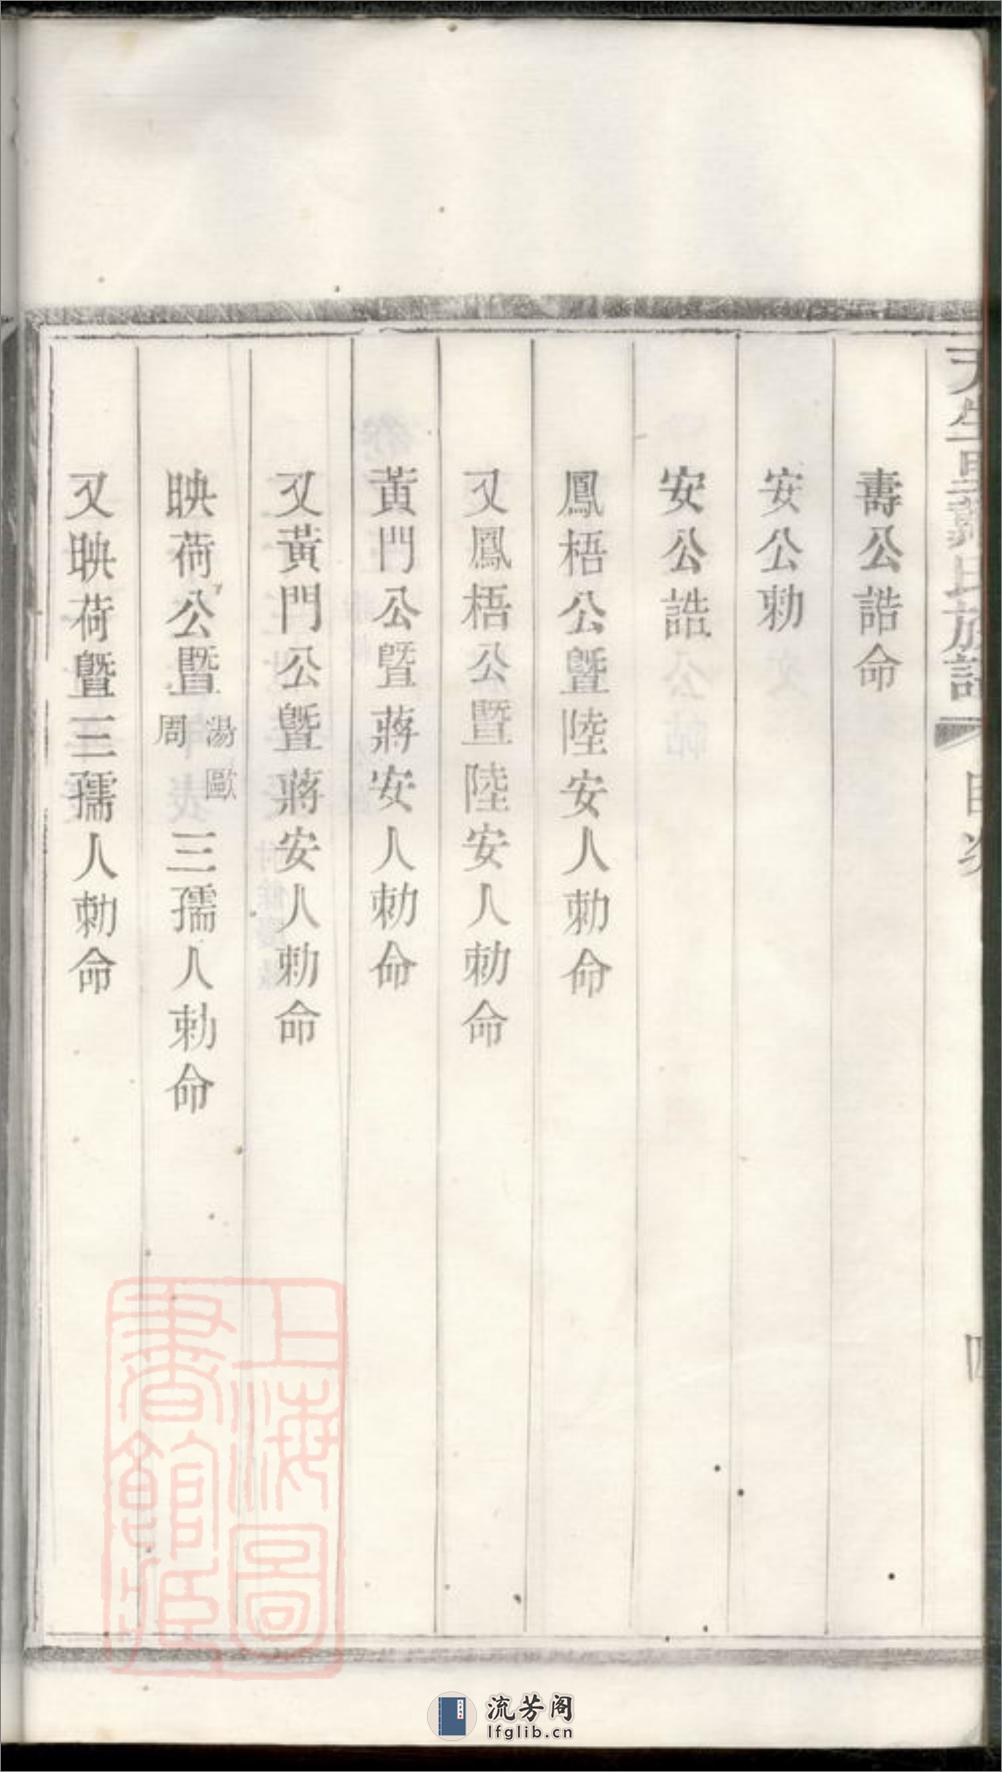 壽公誥命
安公勅
安公誥
鳳梧公暨陸安人勅命
又鳳梧公暨陸安人勅命
黃門公暨蔣安人勅命
又黃門公暨蔣安人勅命
映荷公暨湯歐周三孺人勅命
又映荷暨三孺人勅命
上海圖書館藏
流芳阁
lfglib.cn